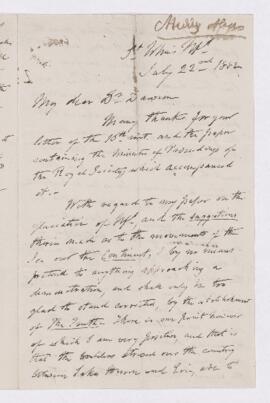 St John's Nfld
July 22nd 1882
My dear Dr Dawson
Many thanks for your
letter of the 13th inst. and the paper
containing the Minutes of Proceedings of
the Royal Society which accompanied
it.-
With regard to my paper on the
glaciation of Nfld, and the suggestions
therein made as to the movements of the
Ice over the Continent, I by no means
pretend to anything approaching a
demonstration, and shall only be too
glad to stand corrected, by the establishment
of The Truth. There is one point however
of which I am very positive, and that is
that the boulders strewed over the country
between Lake Huron and Erie, are to